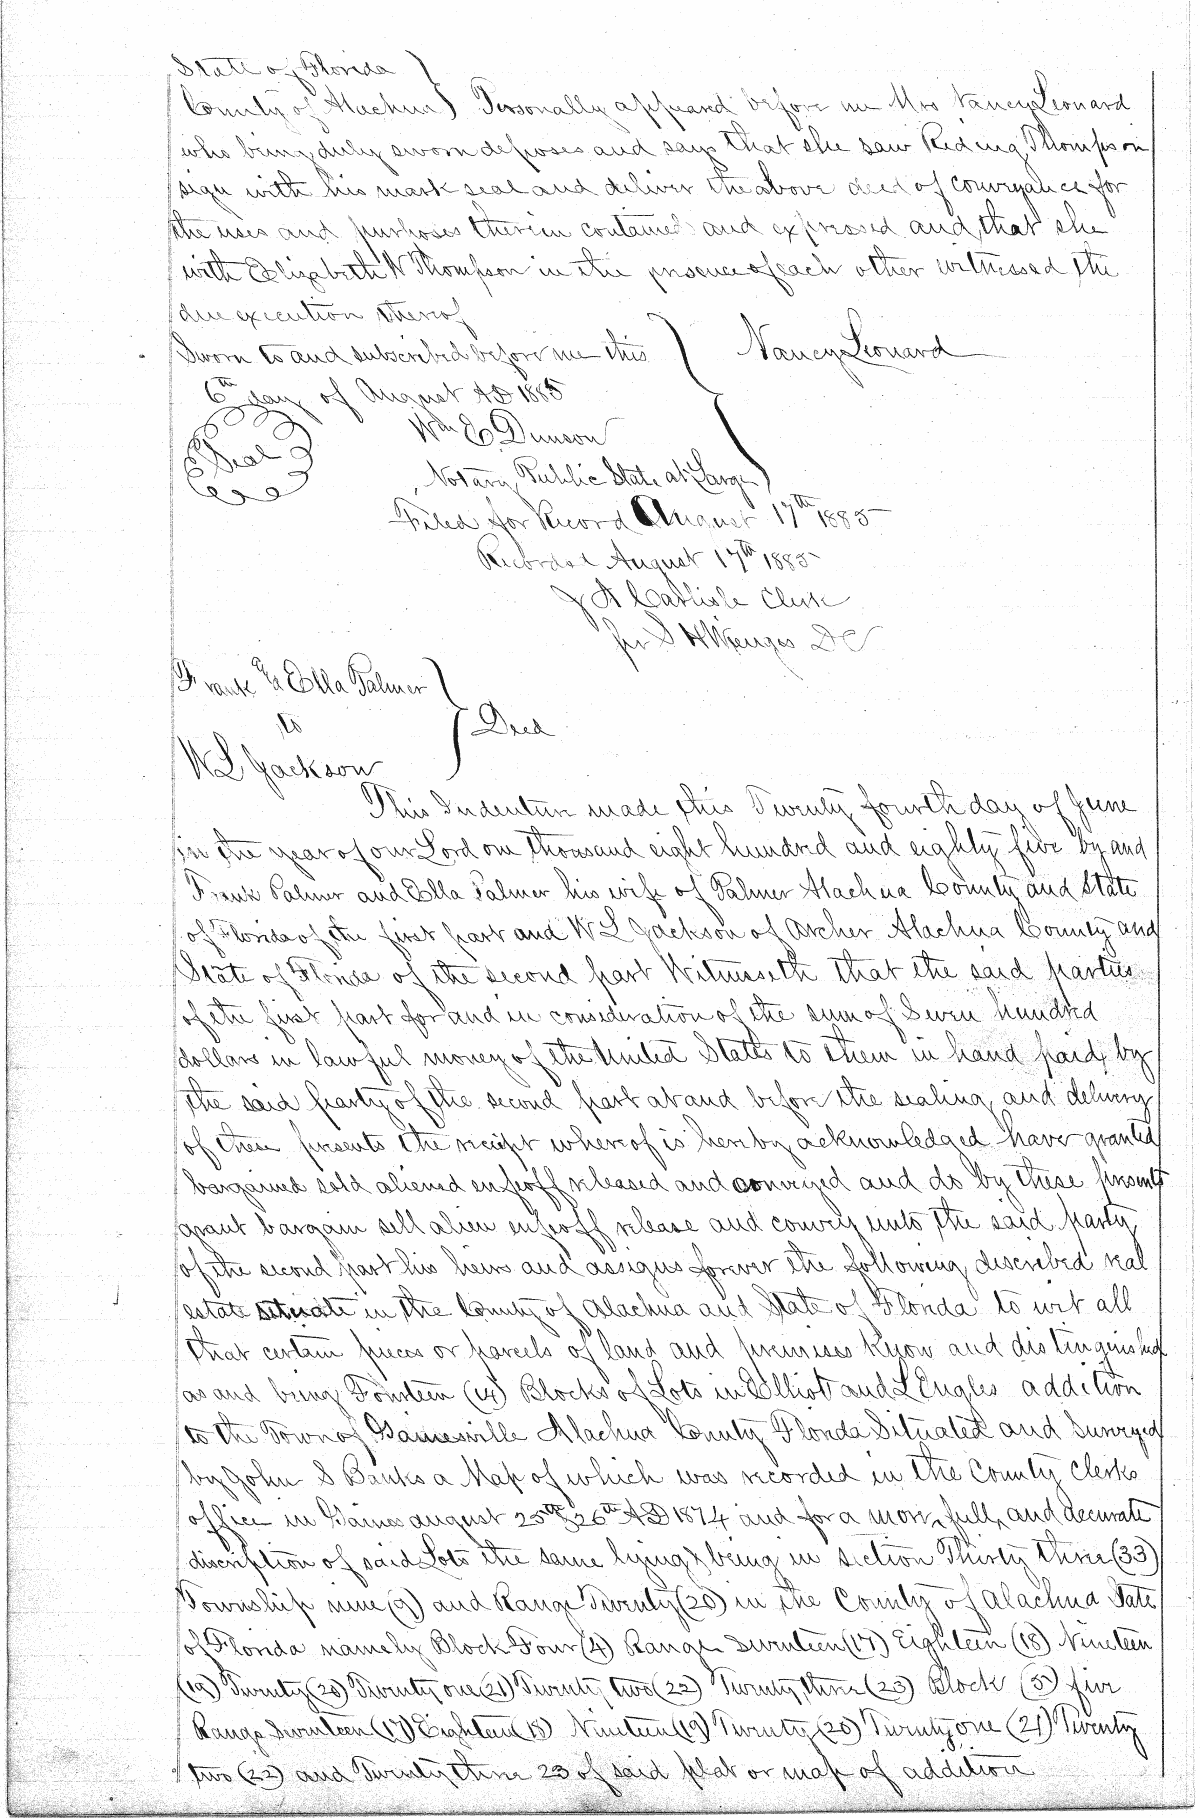 State of Florida
County of Alachua } Personally appeared before me Mrs Nancy Leonard
who being duly sworn deposes and says that she saw Reding Thompson
sign with his mark seal and deliver the above deed of conveyance for
the uses and purposes therein contained and expressed and that she
with Elizabeth N Thompson in the presence of each other witnessed the
due execution thereof
Sworn to and subscribed before me this } Nancy Leonard
6th day of August AD 1885
Wm E. Dunson
Seal
Notary Public State at Large
Filed for Record August 17th 1885
Recorded August 17th 1885
J A Carlisle Clerk
per S H Wienges DC
Frank & Ella Palmer
to } Deed
W L Jackson
This Indenture made this Twenty fourth day of June
in the year of our Lord one thousand eight hundred and eighty five by and
Frank Palmer and Ella Palmer his wife of Palmer Alachua County and State
of Florida of the first part and W L Jackson of Archer Alachua County and
State of Florida of the second part Witnesseth that the said parties
of the first part for and in consideration of the sum of Seven hundred
dollars in lawful money of the United States to them in hand paid by
the said party of the second part at and before the sealing and delivery
of these presents the receipt whereof is hereby acknowledged have granted
bargained sold aliened enfeoff released and conveyed and do by these presents
grant bargain sell alien enfeoff release and convey unto the said party
of the second part his heirs and assigns forever the following described real
estate situate in the County of Alachua and State of Florida to wit all
that certain pieces or parcels of land and premises Kyow and distinguished
as and being Fourteen (14) Blocks of Lots in Elliot and L'Engles addition
to the Town of Gainesville Alachua County Florida Situated and Surveyed
by John S Banks a Map of which was recorded in the County Clerks
office in Gaines august 25th & 26th AD 1874 and for a more full and accurate
discription of said Lots the same lying & being in section Thirty three (33)
Township nine (9) and Range Twenty (20) in the County of Alachua State
of Florida namely Block Four (4) Range Seventeen (17) Eighteen (18) Nineteen
(19) Twenty (20) Twenty one (21) Twenty two (22) Twenty three (23) Block (5) five
Range Seventeen (17) Eighteen (18) Nineteen (19) Twenty (20) Twenty one (21) Twenty
two (22) and Twenty three 23 of said plat or map of addition